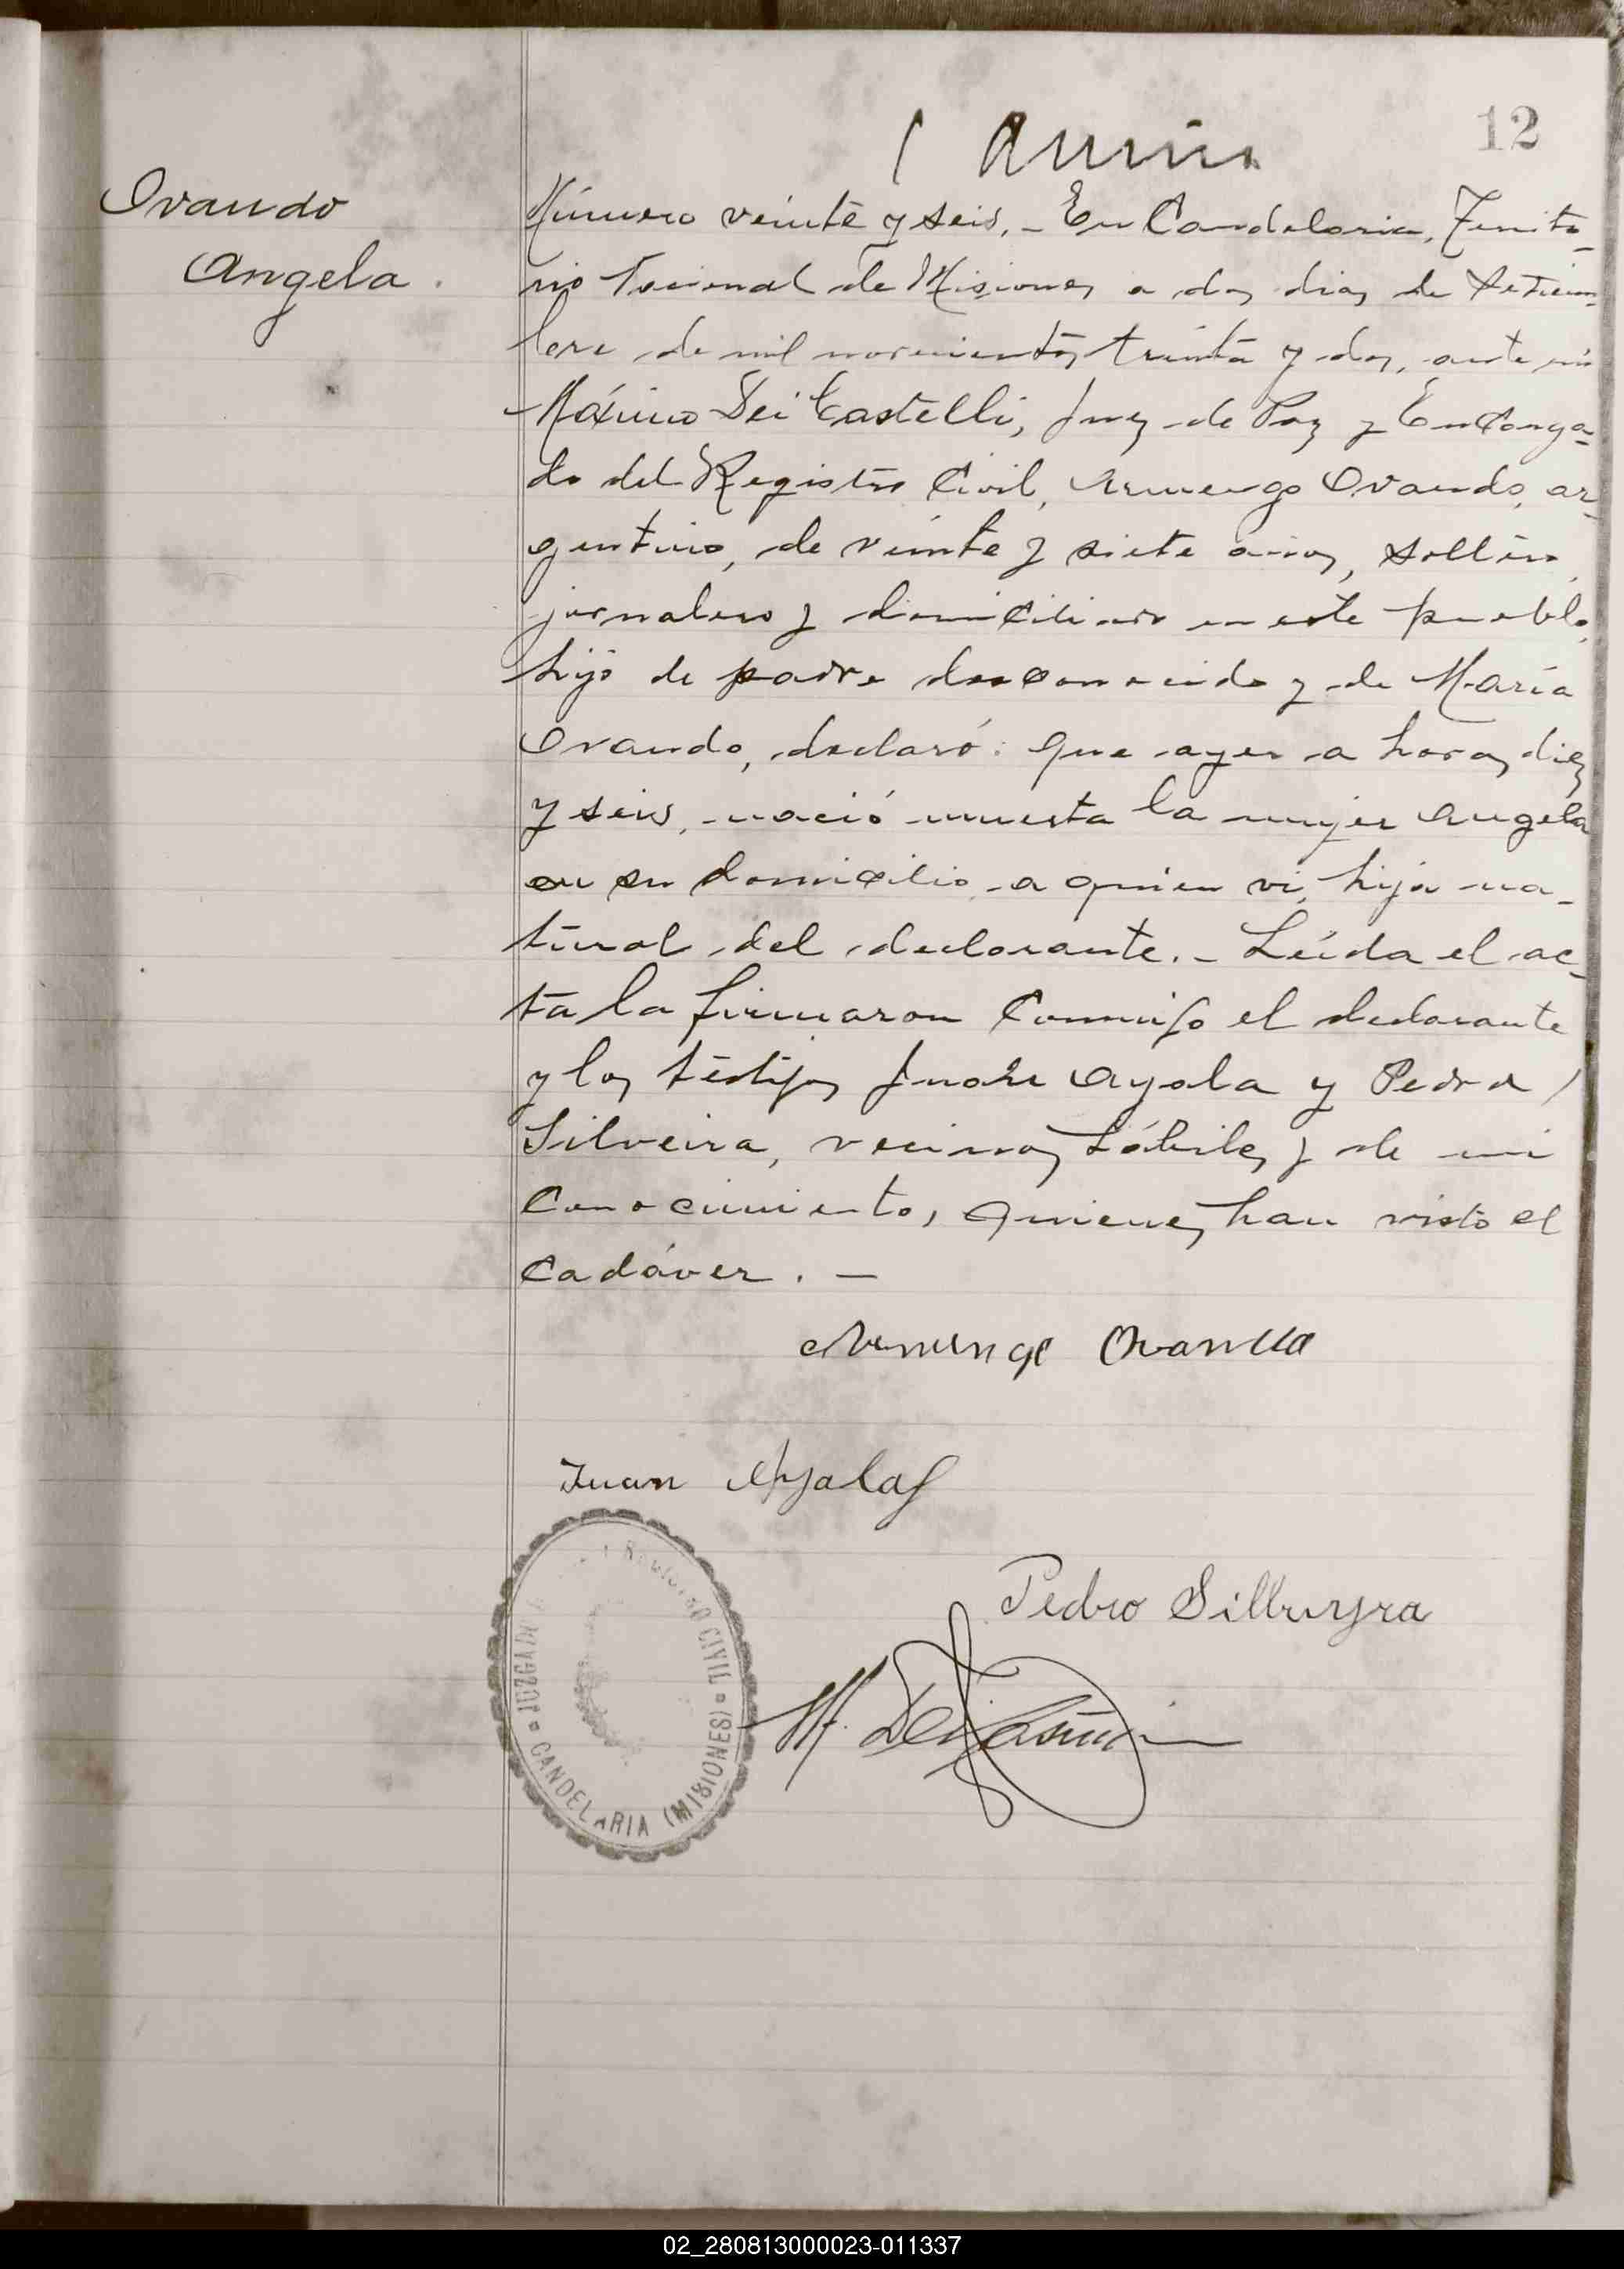 12
Ovando
Angela.
Número veinte y seis.- En Candelaria, Territo-
rio Nacional de Misiones a dos dias de Setiem-
bre de mil novecientos treinta y dos, ante mí
Máximo Dei Castelli, Juez de Paz y Encarga-
do del Registro Civil, Armengo Ovando, ar-
gentino, de veinte y siete años, soltero,
jornalero y domiciliado en este pueblo,
hijo de padre desconocido y de María
Ovando, declaró: Que ayer a horas diez
y seis, nació muerta la mujer Angela
en su domicilio, a quien vi, hija na-
tural del declarante.- Leída el ac-
ta la firmaron conmigo el declarante
y los testigos Ayala y Pedro
Silveira, vecinos hábiles y de mi
conocimiento, quienes han visto el
cadáver. -
Ovando
Juan Ayala
Pedro Silbeyra
M. Dei Castelli
JUZGADO REGISTRO CIVIL
CANDELARIA (MISIONES)
02_280813000023-011337